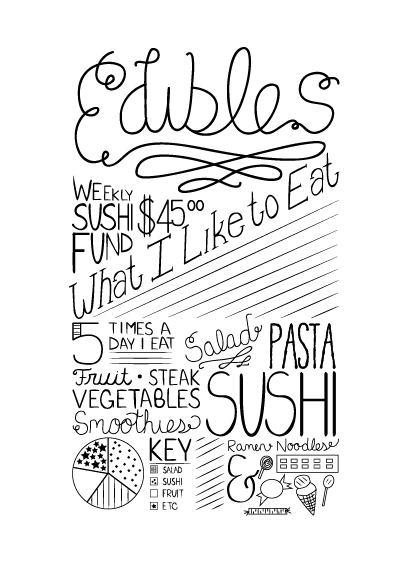 Edibles
WEEKLY
SUSHI $45.00
FUND
What I Like to Eat
5 TIMES A
DAY I EAT
Salad
PASTA
Fruit • STEAK
VEGETABLES
SUSHI
Smoothies
Ramen Noodles
&
KEY
SALAD
SUSHI
FRUIT
ETC